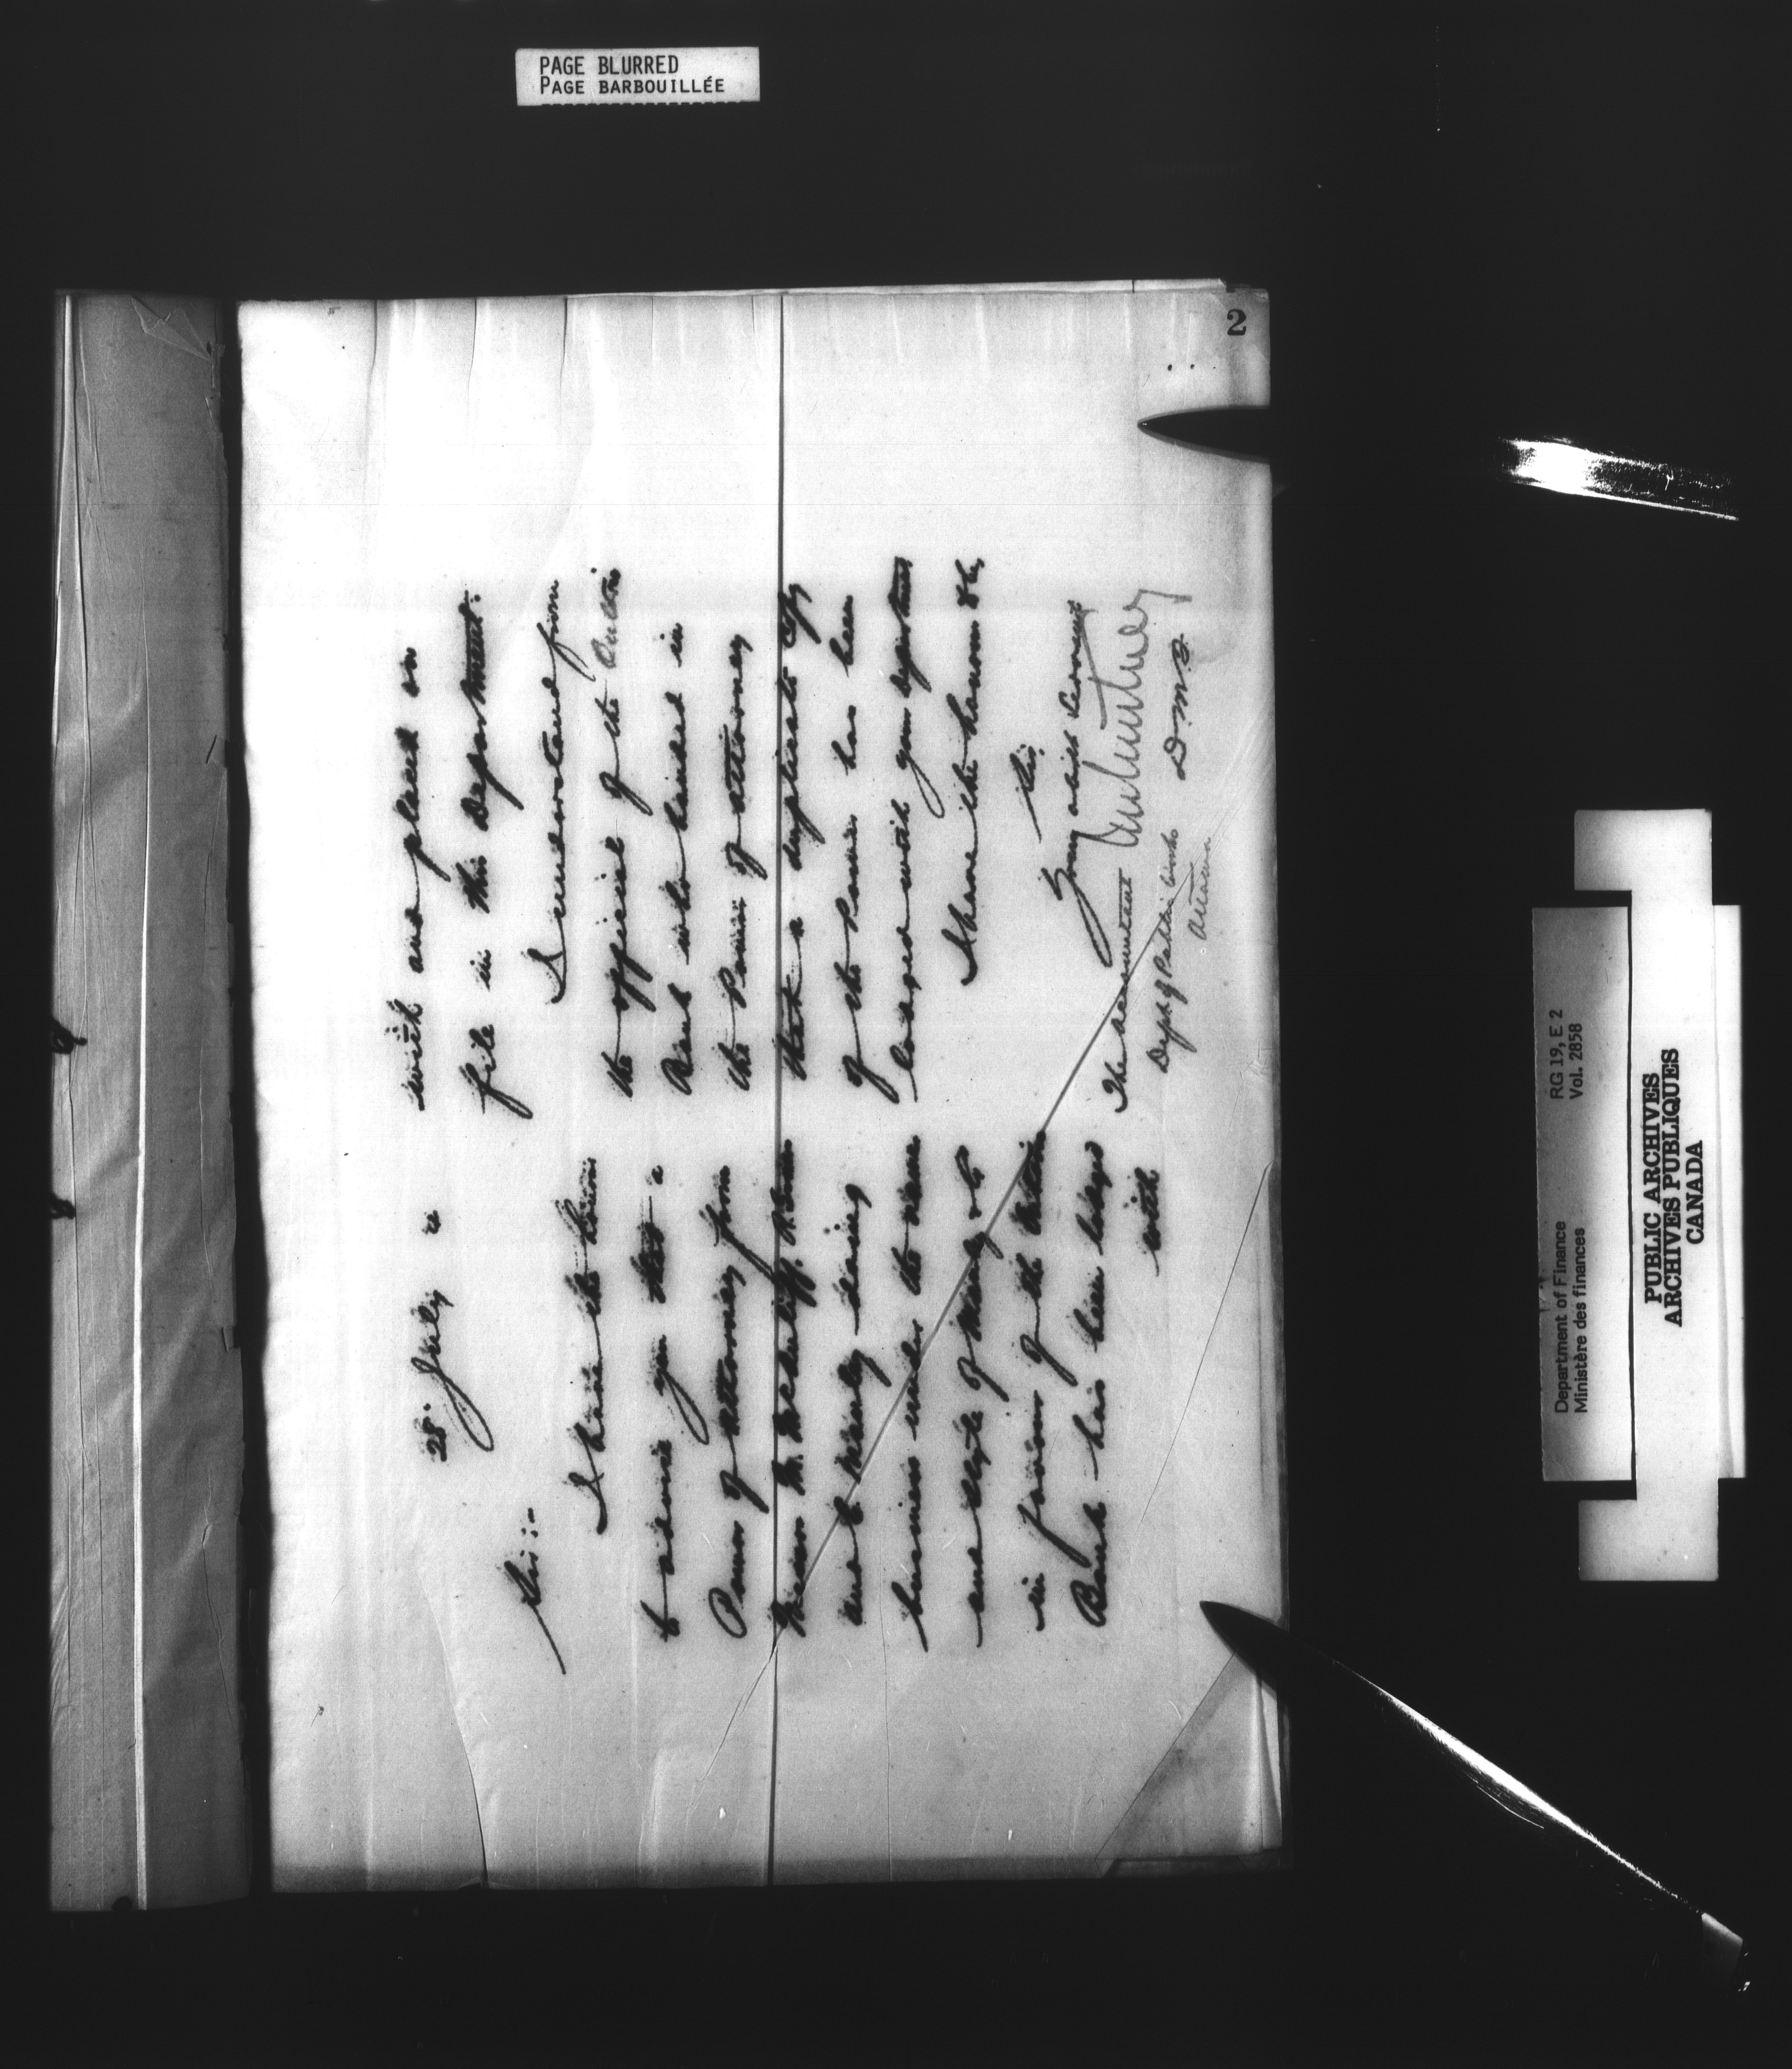 PAGE BLURRED
PAGE BARBOUILLÉE
2
28. July
Sir:-
I have the honour
to advise you that a
Power of Attorney from
Messrs M. McAuliff, R. 
and C. Manly doing
business under the name
and style of Manly & Co
in favour of the
Bank has been lodged
with
with and placed on
file in this Department.
I understand from
the official of the
Bank who handed in
the Power of Attorney
that a duplicate copy
of the Power has been
lodged with your department
I have the honour &c,
Sir,
Your obedt Servant
D.M.F.
The Accountant
Dept of Public Works
Ottawa
Department of Finance RG 19, E 2
Ministère des finances Vol. 2858
PUBLIC ARCHIVES
ARCHIVES PUBLIQUES
CANADA